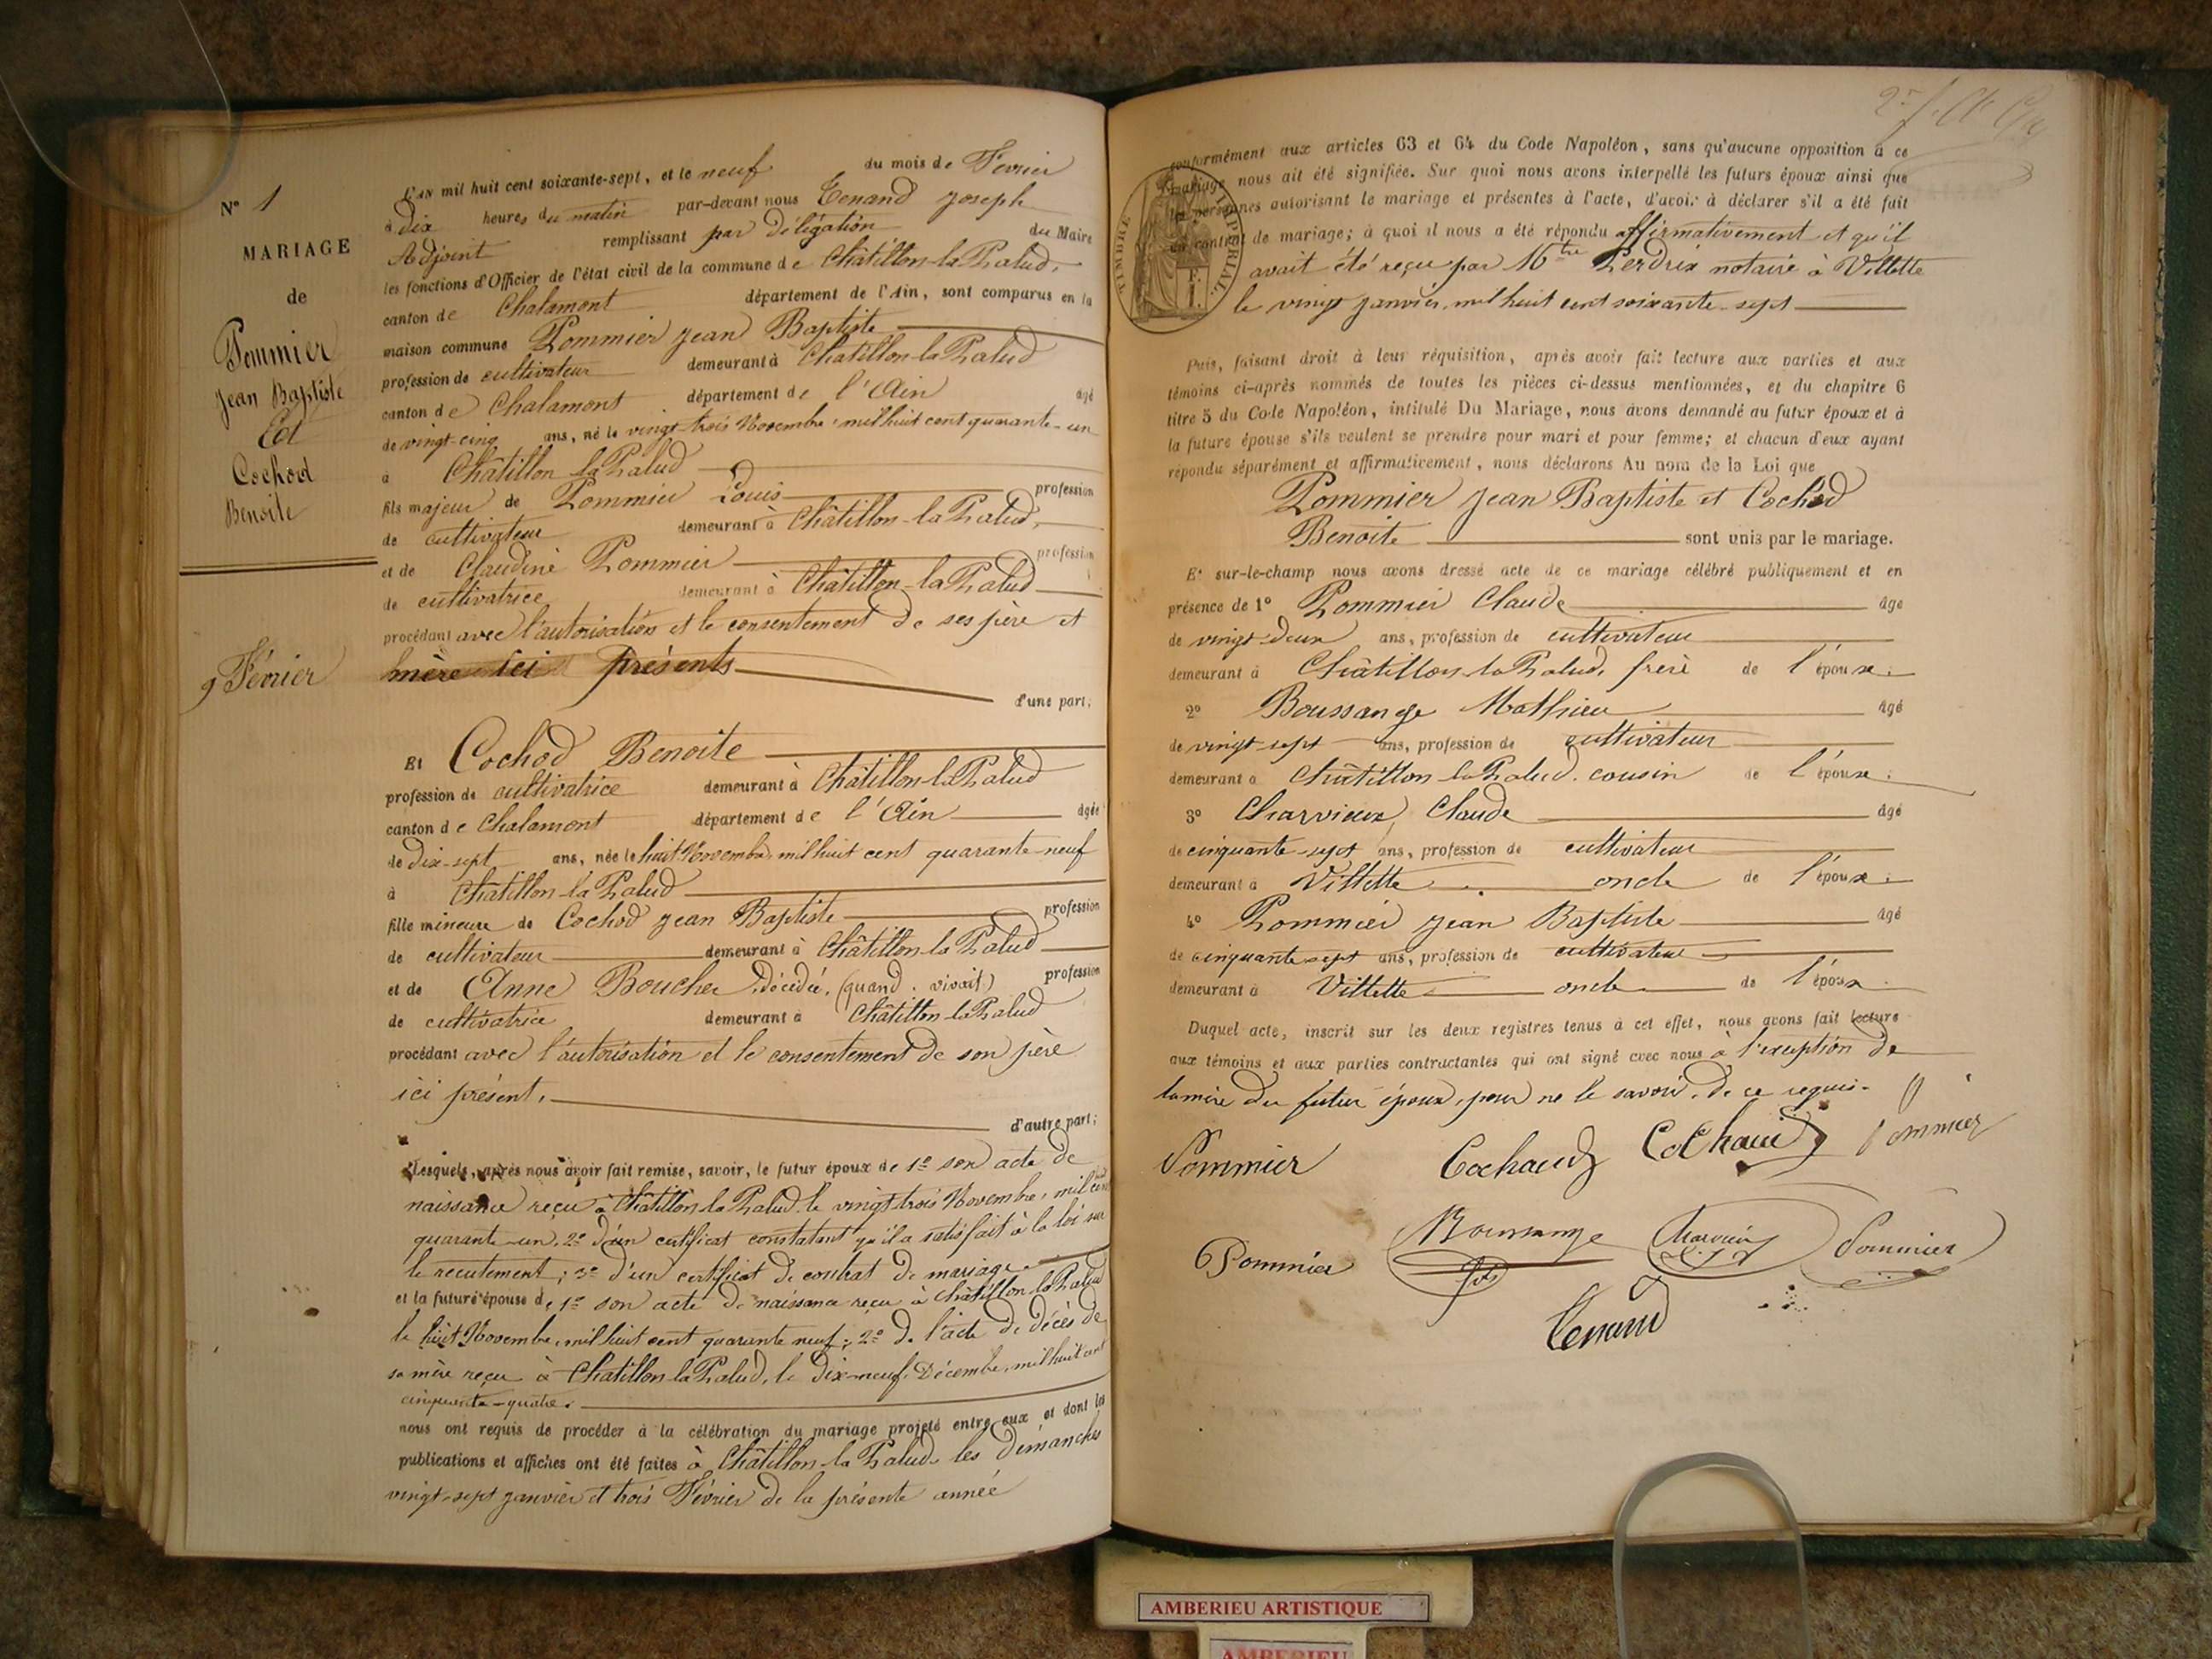 N° 1
MARIAGE
de
Pommier
Jean Baptiste
Et
Cochod
Benoite
9 Février
L'AN mil huit cent soixante-sept, et le neuf du mois de Février
à dix heures du matin par-devant nous Tenand Joseph
Adjoint remplissant par délégation du Maire
les fonctions d'Officier de l'état civil de la commune de Châtillon-la-Palud,
canton de Chalamont département de l'Ain, sont comparus en la
maison commune Pommier Jean Baptiste
profession de cultivateur demeurant à Chatillon-la-Palud
canton de Chalamont département de l'Ain âgé
de vingt-cinq ans, né le vingt-trois Novembre, mil huit cent quarante-un
à Châtillon-la-Palud
fils majeur de Pommier Louis profession
de cultivateur demeurant à Châtillon-la-Palud,
et de Claudine Pommier profession
de cultivatrice demeurant à Châtillon-la-Palud
procédant avec l'autorisation et le consentement de ses père et
mère ici présents
d'une part;
Et Cochod Benoite
profession de cultivatrice demeurant à Châtillon-la-Palud
canton de Chalamont département de l'Ain âgée
de dix-sept ans, née le huit Novembre, mil huit cent quarante-neuf
à Châtillon-la-Palud
fille mineure de Cochod Jean Baptiste profession
de cultivateur demeurant à Châtillon-la-Palud
et de Anne Boucher, décédée, (quand vivait) profession
de cultivatrice demeurant à Châtillon-la-Palud
procédant avec l'autorisation et le consentement de son père
ici présent,
d'autre part;
Lesquels, après nous avoir fait remise, savoir, le futur époux de 1° son acte de
naissance reçu à Châtillon-la-Palud, le vingt-trois Novembre, mil huit cent
quarante-un, 2° d'un certificat constatant qu'il a satisfait à la loi sur
le recrutement; 3° d'un certificat de contrat de mariage
et la future épouse de 1° son acte de naissance reçu à Châtillon-la-Palud
le huit Novembre, mil huit cent quarante neuf; 2° de l'acte de décès de
sa mère reçu à Chatillon-la-Palud, le dix-neuf Décembre, mil huit cent
cinquante-quatre.
nous ont requis de procéder à la célébration du mariage projeté entre eux et dont les
publications et affiches ont été faites à Châtillon-la-Palud les dimanches
vingt-sept Janvier et trois Février de la présente année
TIMBRE IMPERIAL
conformément aux articles 63 et 64 du Code Napoléon, sans qu'aucune opposition à ce
mariage nous ait été signifiée. Sur quoi nous avons interpellé les futurs époux ainsi que
les personnes autorisant le mariage et présentes à l'acte, d'avoir à déclarer s'il a été fait
un contrat de mariage; à quoi il nous a été répondu affirmativement et qu'il
avait été reçu par Mtre Perdrix notaire à Villette
le vingt Janvier, mil huit cent soixante-sept
Puis, faisant droit à leur réquisition, après avoir fait lecture aux parties et aux
témoins ci-après nommés de toutes les pièces ci-dessus mentionnées, et du chapitre 6
titre 5 du Code Napoléon, intitulé Du Mariage, nous avons demandé au futur époux et à
la future épouse s'ils veulent se prendre pour mari et pour femme; et chacun d'eux ayant
répondu séparément et affirmativement, nous déclarons Au nom de la Loi que
Pommier Jean Baptiste et Cochod
Benoite sont unis par le mariage.
Et sur-le-champ nous avons dressé acte de ce mariage célébré publiquement et en
présence de 1° Pommier Claude âgé
de vingt-deux ans, profession de cultivateur
demeurant à Châtillon-la-Palud, frère de l'époux;
2° Boussange Mathieu âgé
de vingt-sept ans, profession de cultivateur
demeurant à Châtillon-la-Palud, cousin de l'époux;
3° Charvieux Claude âgé
de cinquante-sept ans, profession de cultivateur
demeurant à Villette oncle de l'époux;
4° Pommier Jean Baptiste âgé
de cinquante-sept ans, profession de cultivateur
demeurant à Villette oncle de l'époux
Duquel acte, inscrit sur les deux registres tenus à cet effet, nous avons fait lecture
aux témoins et aux parties contractantes qui ont signé avec nous à l'exception de
la mère du futur époux, pour ne le savoir, de ce requis.
Pommier Cochaud Cochaud Pommier
Pommier Boussange Charvieux Pommier
Tenand
AMBERIEU ARTISTIQUE
AMBERIEU